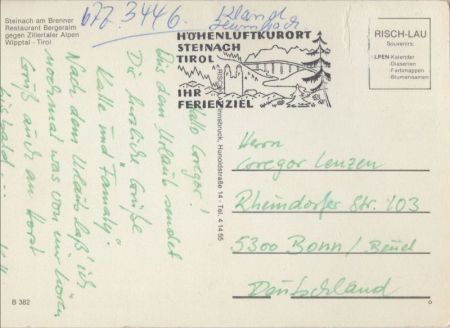 Steinach am Brenner
Restaurant Bergeralm
gegen Zillertaler Alpen
Wipptal - Tirol
677.3446.
HÖHENLUFTKURORT
STEINACH
TIROL
IHR
FERIENZIEL
RISCH-LAU
Souvenirs:
ALPEN-Kalender
-Diaserien
-Farbmappen
-Blumenserien
Innsbruck, Hunoldstraße 14 - Tel. 4 14 55
Hallo Gregor!
Aus dem Urlaub sendet
Dir herzliche Grüße
Kalle und Family.
Nach dem Urlaub laß' ich
nochmal was von mir hören
Gruß auch an Horst
Herrn
Gregor Lenzen
Rheindorfer Str. 103
5300 Bonn / Beuel
Deutschland
B 382